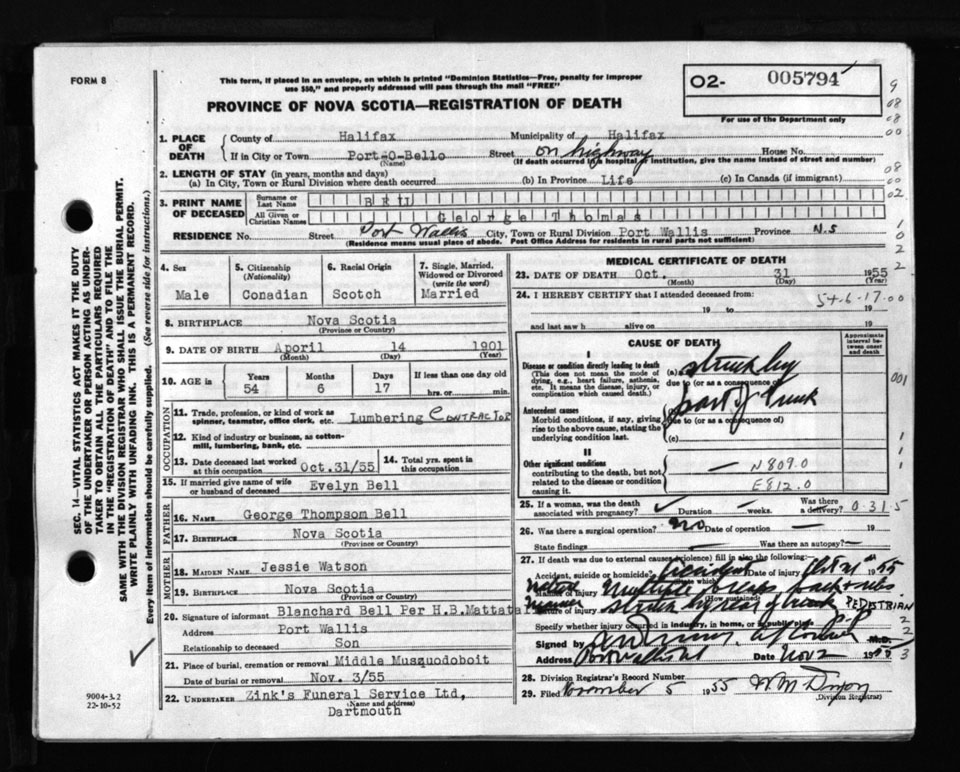 FORM 8
This form, if placed in an envelope, on which is printed "Dominion Statistics—Free, penalty for improper
use $50," and properly addressed will pass through the mail "FREE"
PROVINCE OF NOVA SCOTIA—REGISTRATION OF DEATH
02- 005794
For use of the Department only
1. PLACE OF DEATH
County of Halifax Municipality of Halifax
If in City or Town Port-O-Bello Street on highway House No.
(Name) (If death occurred in a hospital or institution, give the name instead of street and number)
2. LENGTH OF STAY (in years, months and days)
(a) In City, Town or Rural Division where death occurred (b) In Province Life (c) In Canada (if immigrant)
3. PRINT NAME OF DECEASED
Surname or Last Name BELL
All Given or Christian Names George Thomas
RESIDENCE No. Street Port Wallis City, Town or Rural Division Port Wallis Province N.S
(Residence means usual place of abode. Post Office Address for residents in rural parts not sufficient)
4. Sex
Male
5. Citizenship (Nationality)
Conadian
6. Racial Origin
Scotch
7. Single, Married, Widowed or Divorced (write the word)
Married
8. BIRTHPLACE Nova Scotia
(Province or Country)
9. DATE OF BIRTH Aporil 14 1901
(Month) (Day) (Year)
10. AGE IS Years 54 Months 6 Days 17 If less than one day old hrs. or min.
OCCUPATION
11. Trade, profession, or kind of work as spinner, teamster, office clerk, etc. Lumbering CONTRACTOR
12. Kind of industry or business, as cotton-mill, lumbering, bank, etc.
13. Date deceased last worked at this occupation Oct.31/55 14. Total yrs. spent in this occupation
15. If married give name of wife or husband of deceased Evelyn Bell
FATHER
16. NAME George Thompsom Bell
17. BIRTHPLACE Nova Scotia
(Province or Country)
MOTHER
18. MAIDEN NAME Jessie Watson
19. BIRTHPLACE Nova Scotia
(Province or Country)
20. Signature of informant Blanchard Bell Per H.B.Mattata
Address Port Wallis
Relationship to deceased Son
21. Place of burial, cremation or removal Middle Musquodoboit
Date of burial or removal Nov. 3/55
22. UNDERTAKER Zink's Funeral Service Ltd,
(Name and address)
Dartmouth
MEDICAL CERTIFICATE OF DEATH
23. DATE OF DEATH Oct. 31 1955
(Month) (Day) (Year)
24. I HEREBY CERTIFY that I attended deceased from: 54-6-17.00
19 to 19
and last saw h alive on 19
CAUSE OF DEATH
Approximate interval between onset and death
I
Disease or condition directly leading to death
(This does not mean the mode of dying, e.g., heart failure, asthenia, etc. It means the disease, injury, or complication which caused death.)
(a) struck by
due to (or as a consequence of)
part of truck
Antecedent causes
Morbid conditions, if any, giving rise to the above cause, stating the underlying condition last.
due to (or as a consequence of)
(c)
II
Other significant conditions
contributing to the death, but not related to the disease or condition causing it.
N809.0
E812.0
25. If a woman, was the death associated with pregnancy? Duration weeks. Was there a delivery? 0 31 5
26. Was there a surgical operation? no Date of operation 19
State findings Was there an autopsy?
27. If death was due to external causes (violence) fill in also the following:
Accident, suicide or homicide? Accident Date of injury Oct 31 1955
(State which)
Nature of injury Multiple
(How sustained)
Manner of injury struck by rear of truck PEDESTRIAN
Specify whether injury occurred in industry, in home, or in public place
Signed by M.D.
Address Date Nov 2 19
28. Division Registrar's Record Number
29. Filed November 5 1955 W.M.
(Division Registrar)
SEC. 14—VITAL STATISTICS ACT MAKES IT THE DUTY
OF THE UNDERTAKER OR PERSON ACTING AS UNDER-
TAKER TO OBTAIN ALL THE PARTICULARS REQUIRED
IN THE "REGISTRATION OF DEATH" AND TO FILE THE
SAME WITH THE DIVISION REGISTRAR WHO SHALL ISSUE THE BURIAL PERMIT.
WRITE PLAINLY WITH UNFADING INK. THIS IS A PERMANENT RECORD.
Every item of information should be carefully supplied. (See reverse side for instructions.)
9004-3.2
22-10-52
9
08
08
00
08
00
02
1
0
2
2
001
1
1
1
2
2
3